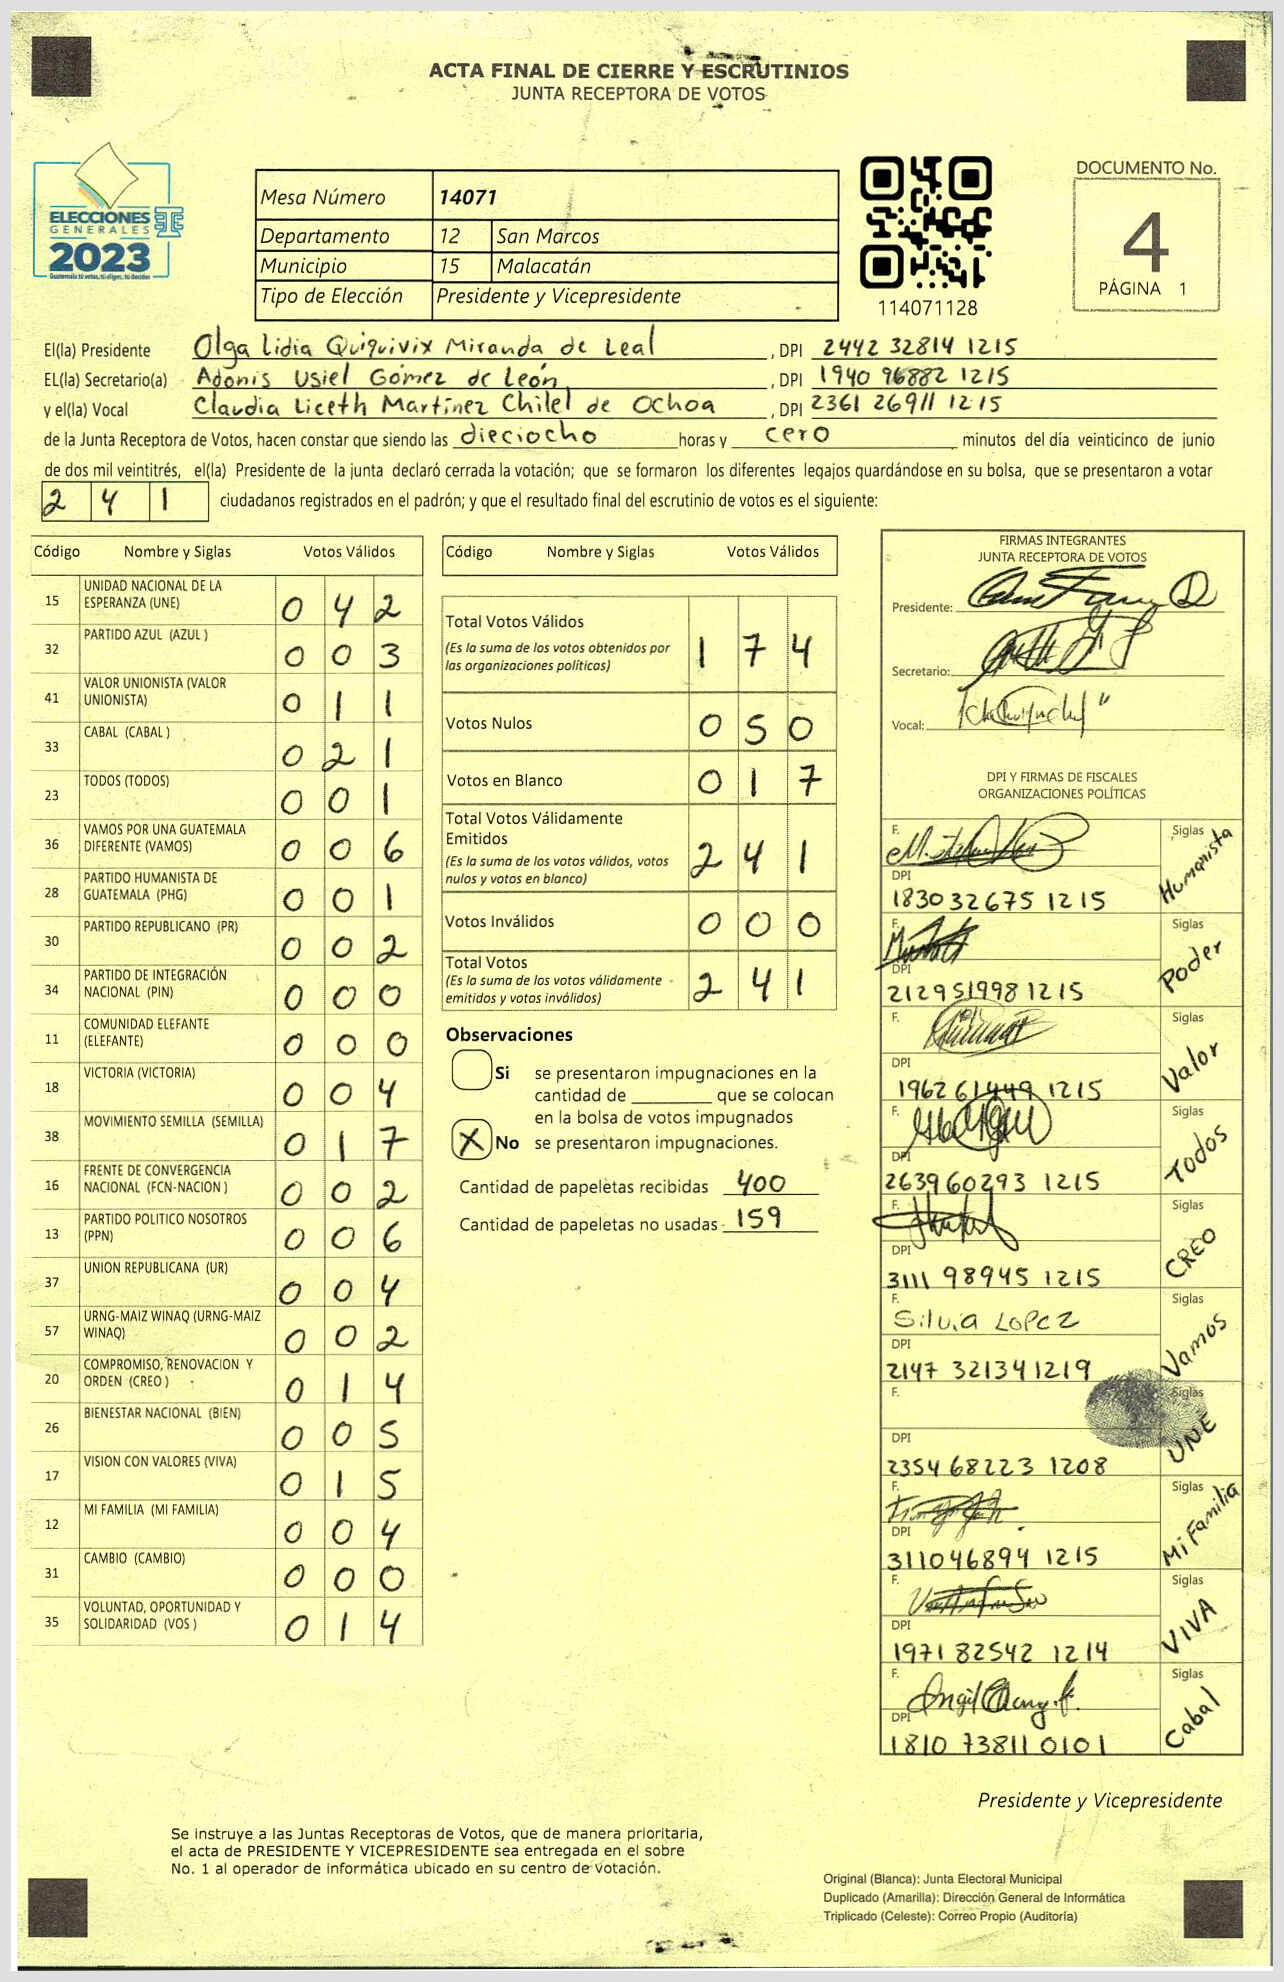 ACTA FINAL DE CIERRE Y ESCRUTINIOS
JUNTA RECEPTORA DE VOTOS
ELECCIONES
GENERALES
2023
Guatemala tú votas, tú eliges, tú decides
Mesa Número 14071
Departamento 12 San Marcos
Municipio 15 Malacatán
Tipo de Elección Presidente y Vicepresidente
114071128
DOCUMENTO No.
4
PÁGINA 1
El(la) Presidente Olga Lidia Quiquivix Miranda de Leal, DPI 2442 32814 1215
EL(la) Secretario(a) Adonis Usiel Gómez de León, DPI 1940 96882 1215
y el(la) Vocal Claudia Liceth Martínez Chilel de Ochoa, DPI 2361 26911 1215
de la Junta Receptora de Votos, hacen constar que siendo las dieciocho horas y cero minutos del día veinticinco de junio
de dos mil veintitrés, el(la) Presidente de la junta declaró cerrada la votación; que se formaron los diferentes legajos guardándose en su bolsa, que se presentaron a votar
2 4 1 ciudadanos registrados en el padrón; y que el resultado final del escrutinio de votos es el siguiente:
Código Nombre y Siglas Votos Válidos
15 UNIDAD NACIONAL DE LA ESPERANZA (UNE) 0 4 2
32 PARTIDO AZUL (AZUL ) 0 0 3
41 VALOR UNIONISTA (VALOR UNIONISTA) 0 1 1
33 CABAL (CABAL ) 0 2 1
23 TODOS (TODOS) 0 0 1
36 VAMOS POR UNA GUATEMALA DIFERENTE (VAMOS) 0 0 6
28 PARTIDO HUMANISTA DE GUATEMALA (PHG) 0 0 1
30 PARTIDO REPUBLICANO (PR) 0 0 2
34 PARTIDO DE INTEGRACIÓN NACIONAL (PIN) 0 0 0
11 COMUNIDAD ELEFANTE (ELEFANTE) 0 0 0
18 VICTORIA (VICTORIA) 0 0 4
38 MOVIMIENTO SEMILLA (SEMILLA) 0 1 7
16 FRENTE DE CONVERGENCIA NACIONAL (FCN-NACION ) 0 0 2
13 PARTIDO POLITICO NOSOTROS (PPN) 0 0 6
37 UNION REPUBLICANA (UR) 0 0 4
57 URNG-MAIZ WINAQ (URNG-MAIZ WINAQ) 0 0 2
20 COMPROMISO, RENOVACION Y ORDEN (CREO ) 0 1 4
26 BIENESTAR NACIONAL (BIEN) 0 0 5
17 VISION CON VALORES (VIVA) 0 1 5
12 MI FAMILIA (MI FAMILIA) 0 0 4
31 CAMBIO (CAMBIO) 0 0 0
35 VOLUNTAD, OPORTUNIDAD Y SOLIDARIDAD (VOS ) 0 1 4
Código Nombre y Siglas Votos Válidos
Total Votos Válidos 1 7 4
(Es la suma de los votos obtenidos por
las organizaciones políticas)
Votos Nulos 0 5 0
Votos en Blanco 0 1 7
Total Votos Válidamente
Emitidos 2 4 1
(Es la suma de los votos válidos, votos
nulos y votos en blanco)
Votos Inválidos 0 0 0
Total Votos 2 4 1
(Es la suma de los votos válidamente
emitidos y votos inválidos)
Observaciones
Si se presentaron impugnaciones en la
cantidad de ________ que se colocan
en la bolsa de votos impugnados
X No se presentaron impugnaciones.
Cantidad de papeletas recibidas 400
Cantidad de papeletas no usadas 159
FIRMAS INTEGRANTES
JUNTA RECEPTORA DE VOTOS
Presidente:
Secretario:
Vocal:
DPI Y FIRMAS DE FISCALES
ORGANIZACIONES POLÍTICAS
F. Siglas Humanista
DPI 1830 32675 1215
F. Siglas Poder
DPI 2129 51998 1215
F. Siglas Valor
DPI 1962 61449 1215
F. Siglas Todos
DPI 2639 60293 1215
F. Siglas CREO
DPI 3111 98945 1215
F. Silvia Lopez Siglas Vamos
DPI 2147 32134 1219
F. Siglas UNE
DPI 2354 68223 1208
F. Siglas Mi Familia
DPI 3110 46894 1215
F. Siglas VIVA
DPI 1971 82542 1214
F. Siglas Cabal
DPI 1810 73811 0101
Presidente y Vicepresidente
Se instruye a las Juntas Receptoras de Votos, que de manera prioritaria,
el acta de PRESIDENTE Y VICEPRESIDENTE sea entregada en el sobre
No. 1 al operador de informática ubicado en su centro de votación.
Original (Blanca): Junta Electoral Municipal
Duplicado (Amarilla): Dirección General de Informática
Triplicado (Celeste): Correo Propio (Auditoría)